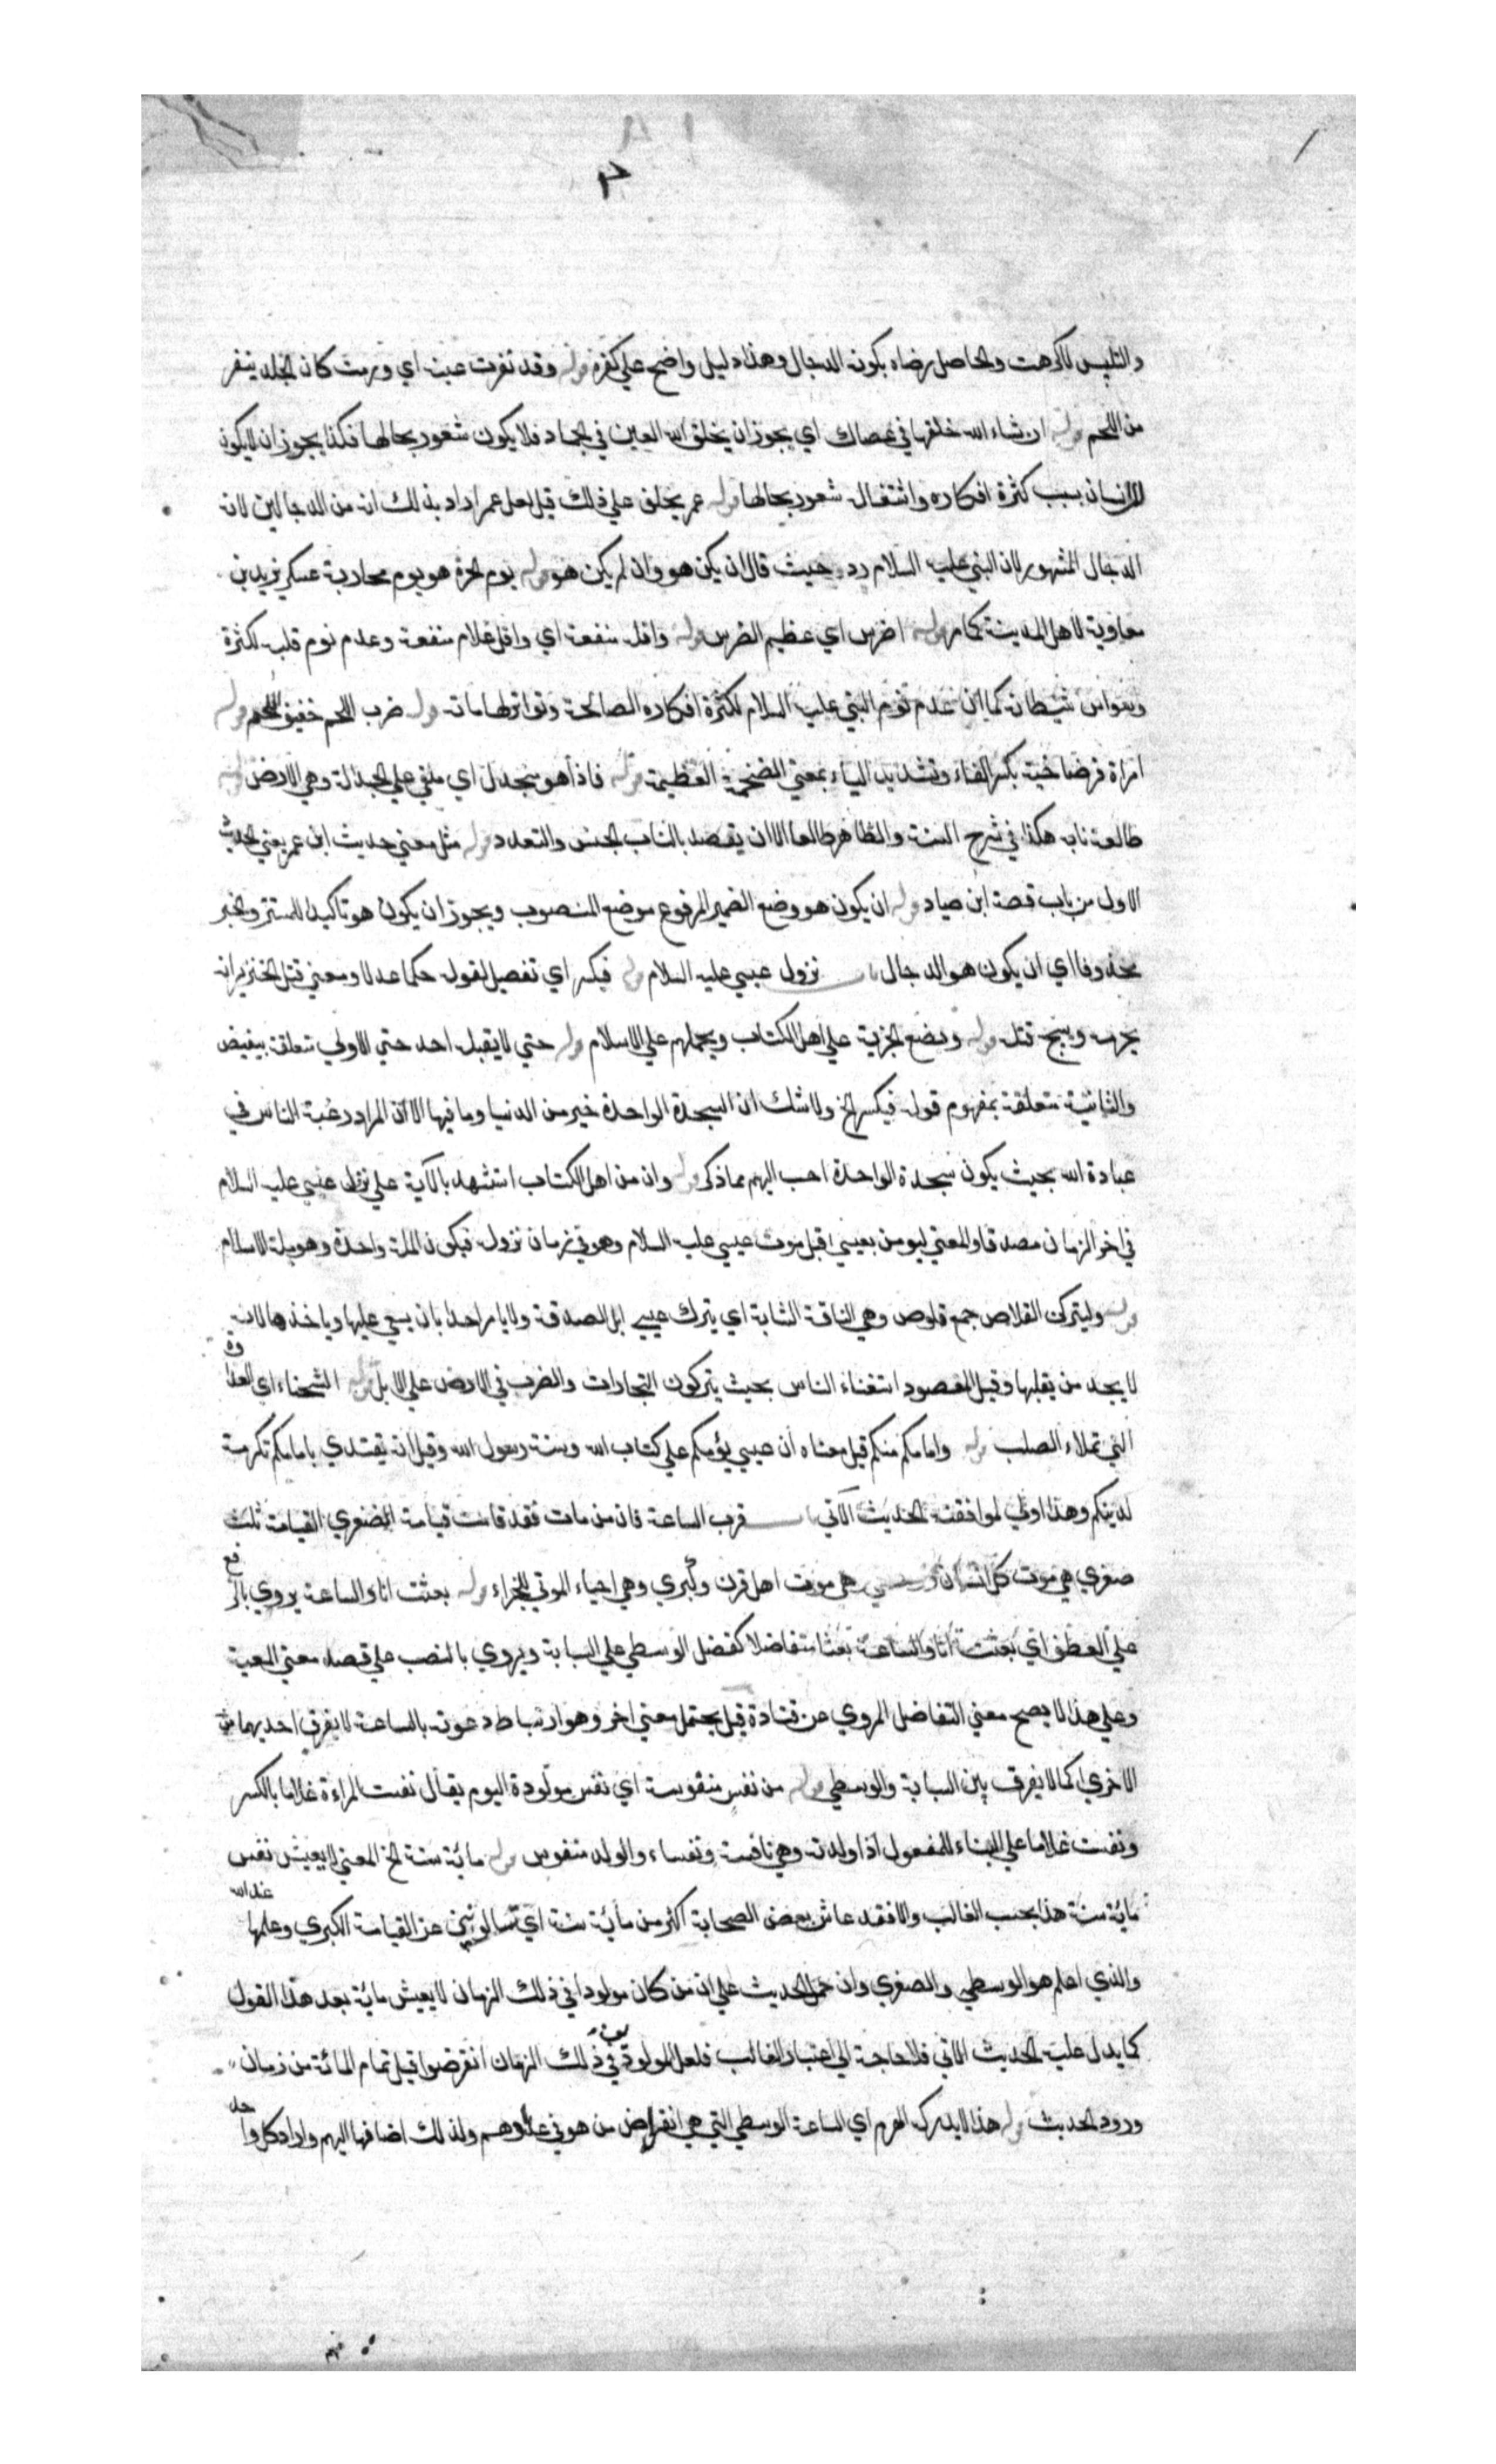 والتلبيس لما كرهت والحاصل رضاه بكونه الدجال وهذا دليل واضح علي كفره قوله وقد نفرت عينه اي ورمت كان الجلد ينفر
من اللحم قوله ان شاء الله خلقها في عصاك اي يجوز ان يخلق الله العين في الجماد فلا يكون شعور بحالها فكذا يجوز ان لا يكون
للانسان بسبب كثرة افكاره واشتغاله شعور بحالها قوله عمر يحلف علي ذلك قيل لعل عمر اراد بذلك انه من الدجالين لا انه
الدجال المشهور لان النبي عليه السلام ردد حيث قال ان يكن هو وان لم يكن هو قوله يوم الحرة هو يوم محاربة عسكر يزيد بن
معاوية لاهل المدينة كما مر قوله اضرس اي عظيم الضرس قوله واقله منفعة اي واقل غلام منفعة وعدم نوم قلبه لكثرة
وسواس شيطانه كما ان عدم نوم النبي عليه السلام لكثرة افكاره الصالحة وتواتر الهاماته قوله ضرب اللحم خفيف اللحم قوله
امراة فرضاخية بكسر الفاء وتشديد الياء بمعني الضخمة العظيمة قوله فاذا هو منجدل اي ملقي علي الجدالة وهي الارض قوله
طالعة نابه هكذا في شرح السنة والظاهر طالعا الا ان يقصد بالناب الجنس والتعدد قوله مثل معني حديث ابن عمر يعني الحديث
الاول من باب قصة ابن صياد قوله ان يكون هو وضع الضمير المرفوع موضع المنصوب ويجوز ان يكون هو تاكيدا للمستتر والخبر
محذوفا اي ان يكون هو الدجال باب نزول عيسي عليه السلام قوله فيكسر اي تفصيل لقوله حكما عدلا ومعني قتل الخنزير انه
يحرمه ويبيح قتله قوله ويضع الجزية علي اهل الكتاب ويحملهم علي الاسلام قوله حتي لا يقبله احد حتي الاولي متعلقة بيفيض
والثانية متعلقة بمفهوم قوله فيكسر الخ ولا شك ان السجدة الواحدة خير من الدنيا وما فيها الا ان المراد رغبة الناس في
عبادة الله بحيث يكون سجدة الواحدة احب اليهم مما ذكر قوله وان من اهل الكتاب استشهد بالآية علي نزول عيسي عليه السلام
في اخر الزمان مصدقا والمعني ليومن بعيسي قبل موت عيسي عليه السلام وهو في زمان نزوله فيكون الملة واحدة وهو ملة الاسلام
قوله وليتركن القلاص جمع قلوص وهي الناقة الشابة اي يترك عيسي ابل الصدقة ولا يامر احدا بان يسعي عليها وياخذها لانه
لا يجد من يقبلها وقيل المقصود استغناء الناس بحيث يتركون التجارات والضرب في الارض علي الابل قوله الشحناء اي العداوة
التي تملاء القلب قوله وامامكم منكم قيل معناه ان عيسي يؤمكم علي كتاب الله وسنة رسول الله وقيل انه يقتدي بامامكم تكرمة
لدينكم وهذا اولي لموافقته الحديث الآتي باب قرب الساعة فان من مات فقد قامت قيامة الصغري القيامة ثلث
صغري هي موت كل انسان ووسطي هي موت اهل قرن وكبري وهي احياء الموتي للجزاء قوله بعثت انا والساعة يروي بالرفع
علي العطف اي بعثت انا والساعة بعثا متفاضلا كفضل الوسطي علي السبابة ويروي بالنصب علي قصد معني المعية
وعلي هذا لا يصح معني التفاضل المروي عن قتادة قيل يحتمل معني اخر وهو ارتباط دعوته بالساعة لا يفرق احديهما من
الاخري كما لا يفرق بين السبابة والوسطي قوله من نفس منفوسة اي نفس مولودة اليوم يقال نفست المراءة غلاما بالكسر
ونفست غلاما علي البناء للمفعول اذا ولدته وهي نافسة ونفساء والولد منفوس قوله مائة سنة الخ المعني لا يعيش نفس
مائة سنة هذا بحسب الغالب والا فقد عاش بعض الصحابة اكثر من مائة سنة اي تسالونني عن القيامة الكبري وعلمها عند الله
والذي اعلم هو الوسطي والصغري وان حمل الحديث علي ان من كان مولودا في ذلك الزمان لا يعيش مائة بعد هذا القول
كما يدل عليه الحديث الاتي فلا حاجة الي اعتبار الغالب فلعل المولودين في ذلك الزمان انقرضوا قبل تمام المائة من زمان
ورود الحديث قوله هذا لا يدركه الهرم اي الساعة الوسطي التي هي انقراض من هو في عدادهم ولذلك اضافها اليهم واراد كل واحد